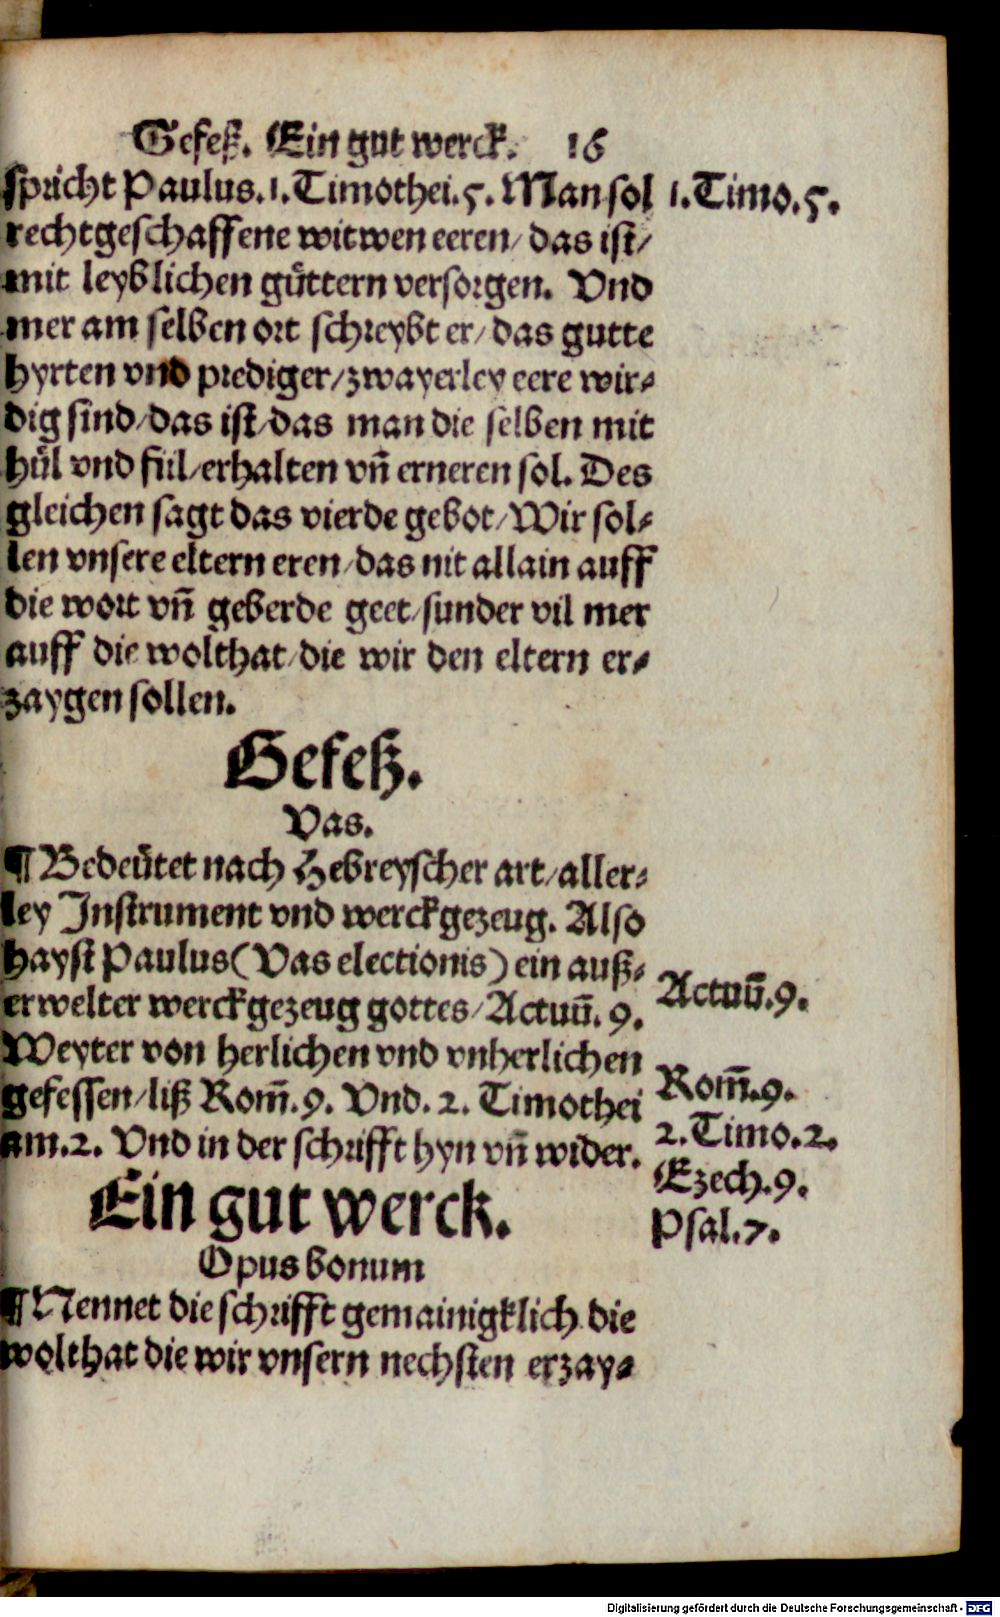 Gefeß. Ein gut werck. 16
spricht Paulus.1.Timothei.5. Man sol
1.Timo.5.
rechtgeschaffene witwen eeren/ das ist/
mit leyblichen guͤttern versorgen. Vnd
mer am selben ort schreybt er/ das gutte
hyrten vnd prediger/ zwayerley eere wir⸗
dig sind/ das ist/ das man die selben mit
huͤl vnd fuͤl/ erhalten vñ erneren sol. Des
gleichen sagt das vierde gebot/ Wir sol⸗
len vnsere eltern eren/ das nit allain auff
die wort vñ geberde geet/ sunder vil mer
auff die wolthat/ die wir den eltern er⸗
zaygen sollen.
Gefeß.
Vas.
¶ Bedeuͤtet nach Hebreyscher art/ aller⸗
ley Instrument vnd werckgezeug. Also
hayst Paulus (Vas electionis) ein auß⸗
erwelter werckgezeug gottes/ Actuū. 9.
Actuū.9.
Weyter von herlichen vnd vnherlichen
gefessen/ liß Rom̄.9. Vnd. 2. Timothei
Rom̄.9.
am.2. Vnd in der schrifft hyn vñ wider.
2.Timo.2.
Ezech.9.
Psal.7.
Ein gut werck.
Opus bonum
¶ Nennet die schrifft gemainigklich die
wolthat die wir vnsern nechsten erzay⸗
Digitalisierung gefördert durch die Deutsche Forschungsgemeinschaft - DFG